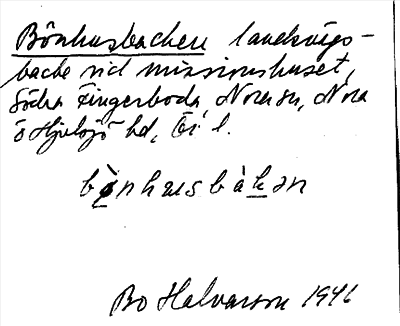 Bönhusbacken landsvägs-
backe vid missionshuset,
Södra Fingerboda, Nora sn, Nora
o Hjulsjö hd, Ör l.
bönhusbàkən
Bo Halvarson 1946